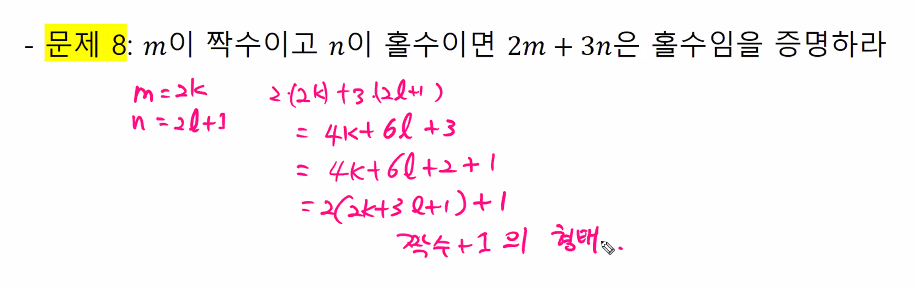 - 문제 8: m이 짝수이고 n이 홀수이면 2m + 3n은 홀수임을 증명하라
m = 2k 2·(2k) + 3·(2l+1)
n = 2l+1
= 4k + 6l + 3
= 4k + 6l + 2 + 1
= 2(2k+3l+1) + 1
짝수 + 1의 형태.